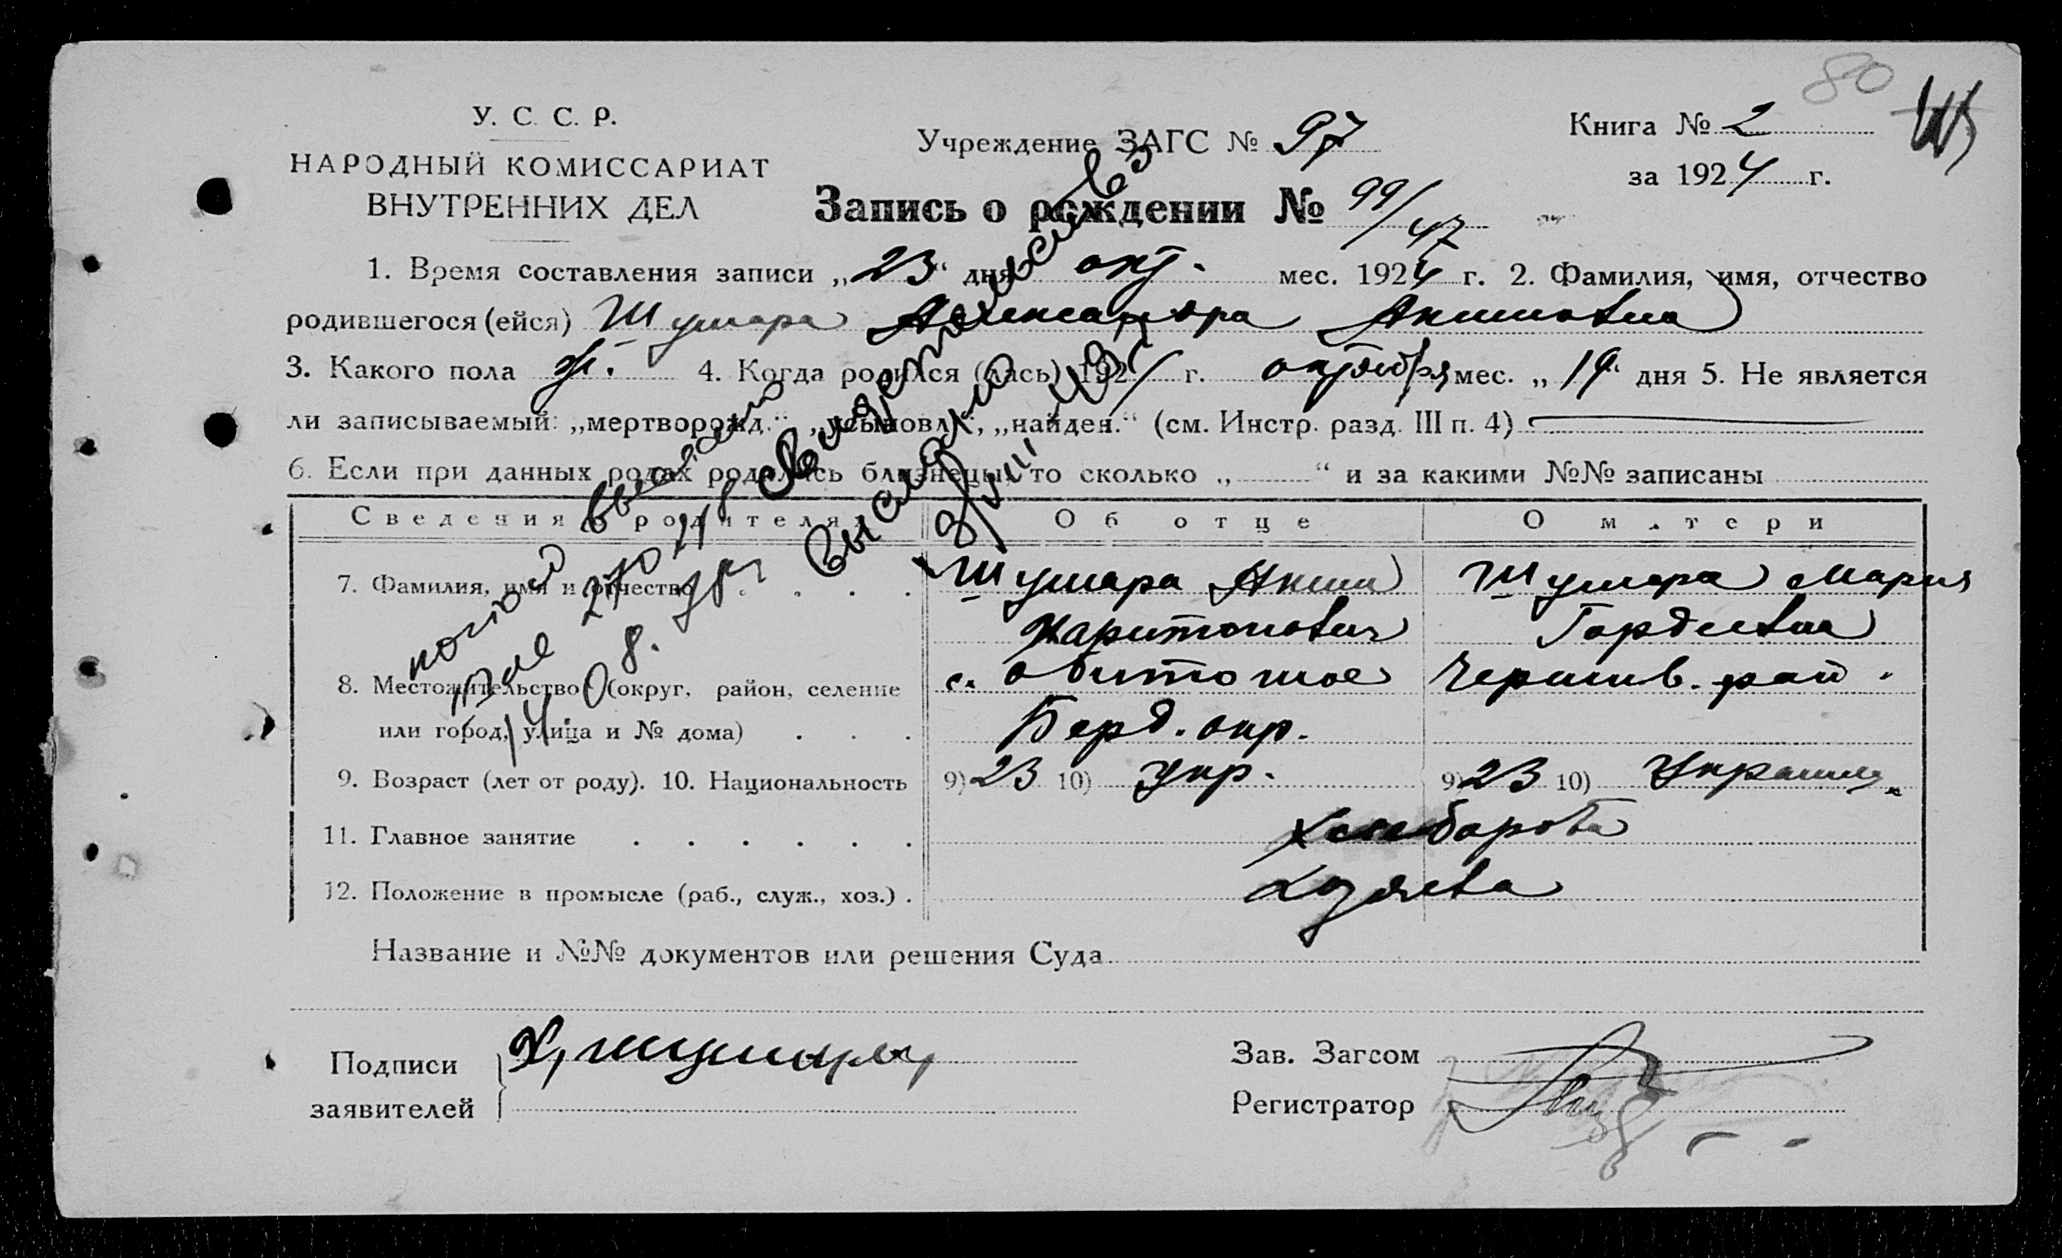 80
У. С. С. Р.
НАРОДНЫЙ КОМИССАРИАТ
ВНУТРЕННИХ ДЕЛ
Учреждение ЗАГС № 97
Книга № 2
за 1924 г.
Запись о рождении № 99/47
1. Время составления записи „23“ дня окт. мес. 1924 г. 2. Фамилия, имя, отчество
родившегося (ейся) Шушара Александра Акимовна
3. Какого пола ж. 4. Когда родился (лась) 192 г. октября мес. „19“ дня 5. Не является
ли записываемый: „мертворожд.“, „усыновл.“, „найден.“ (см. Инстр. разд. III п. 4)
6. Если при данных родах родились близнецы, то сколько „ “ и за какими №№ записаны
Сведения о родителях
Об отце
О матери
7. Фамилия, имя и отчество
Шушара Аким
Харитонович
Шушара Мария
Гордеевна
8. Местожительство (округ, район, селение
или город, улица и № дома)
с. Обиточное
Берд. окр.
Черниив. рай.
9. Возраст (лет от роду). 10. Национальность
9) 23 10) Укр.
9) 23 10) Украин.
11. Главное занятие
Хлебороба
12. Положение в промысле (раб., служ., хоз.)
хозяева
Название и №№ документов или решения Суда
Подписи
заявителей
Зав. Загсом
Регистратор
свидетельство
выслано